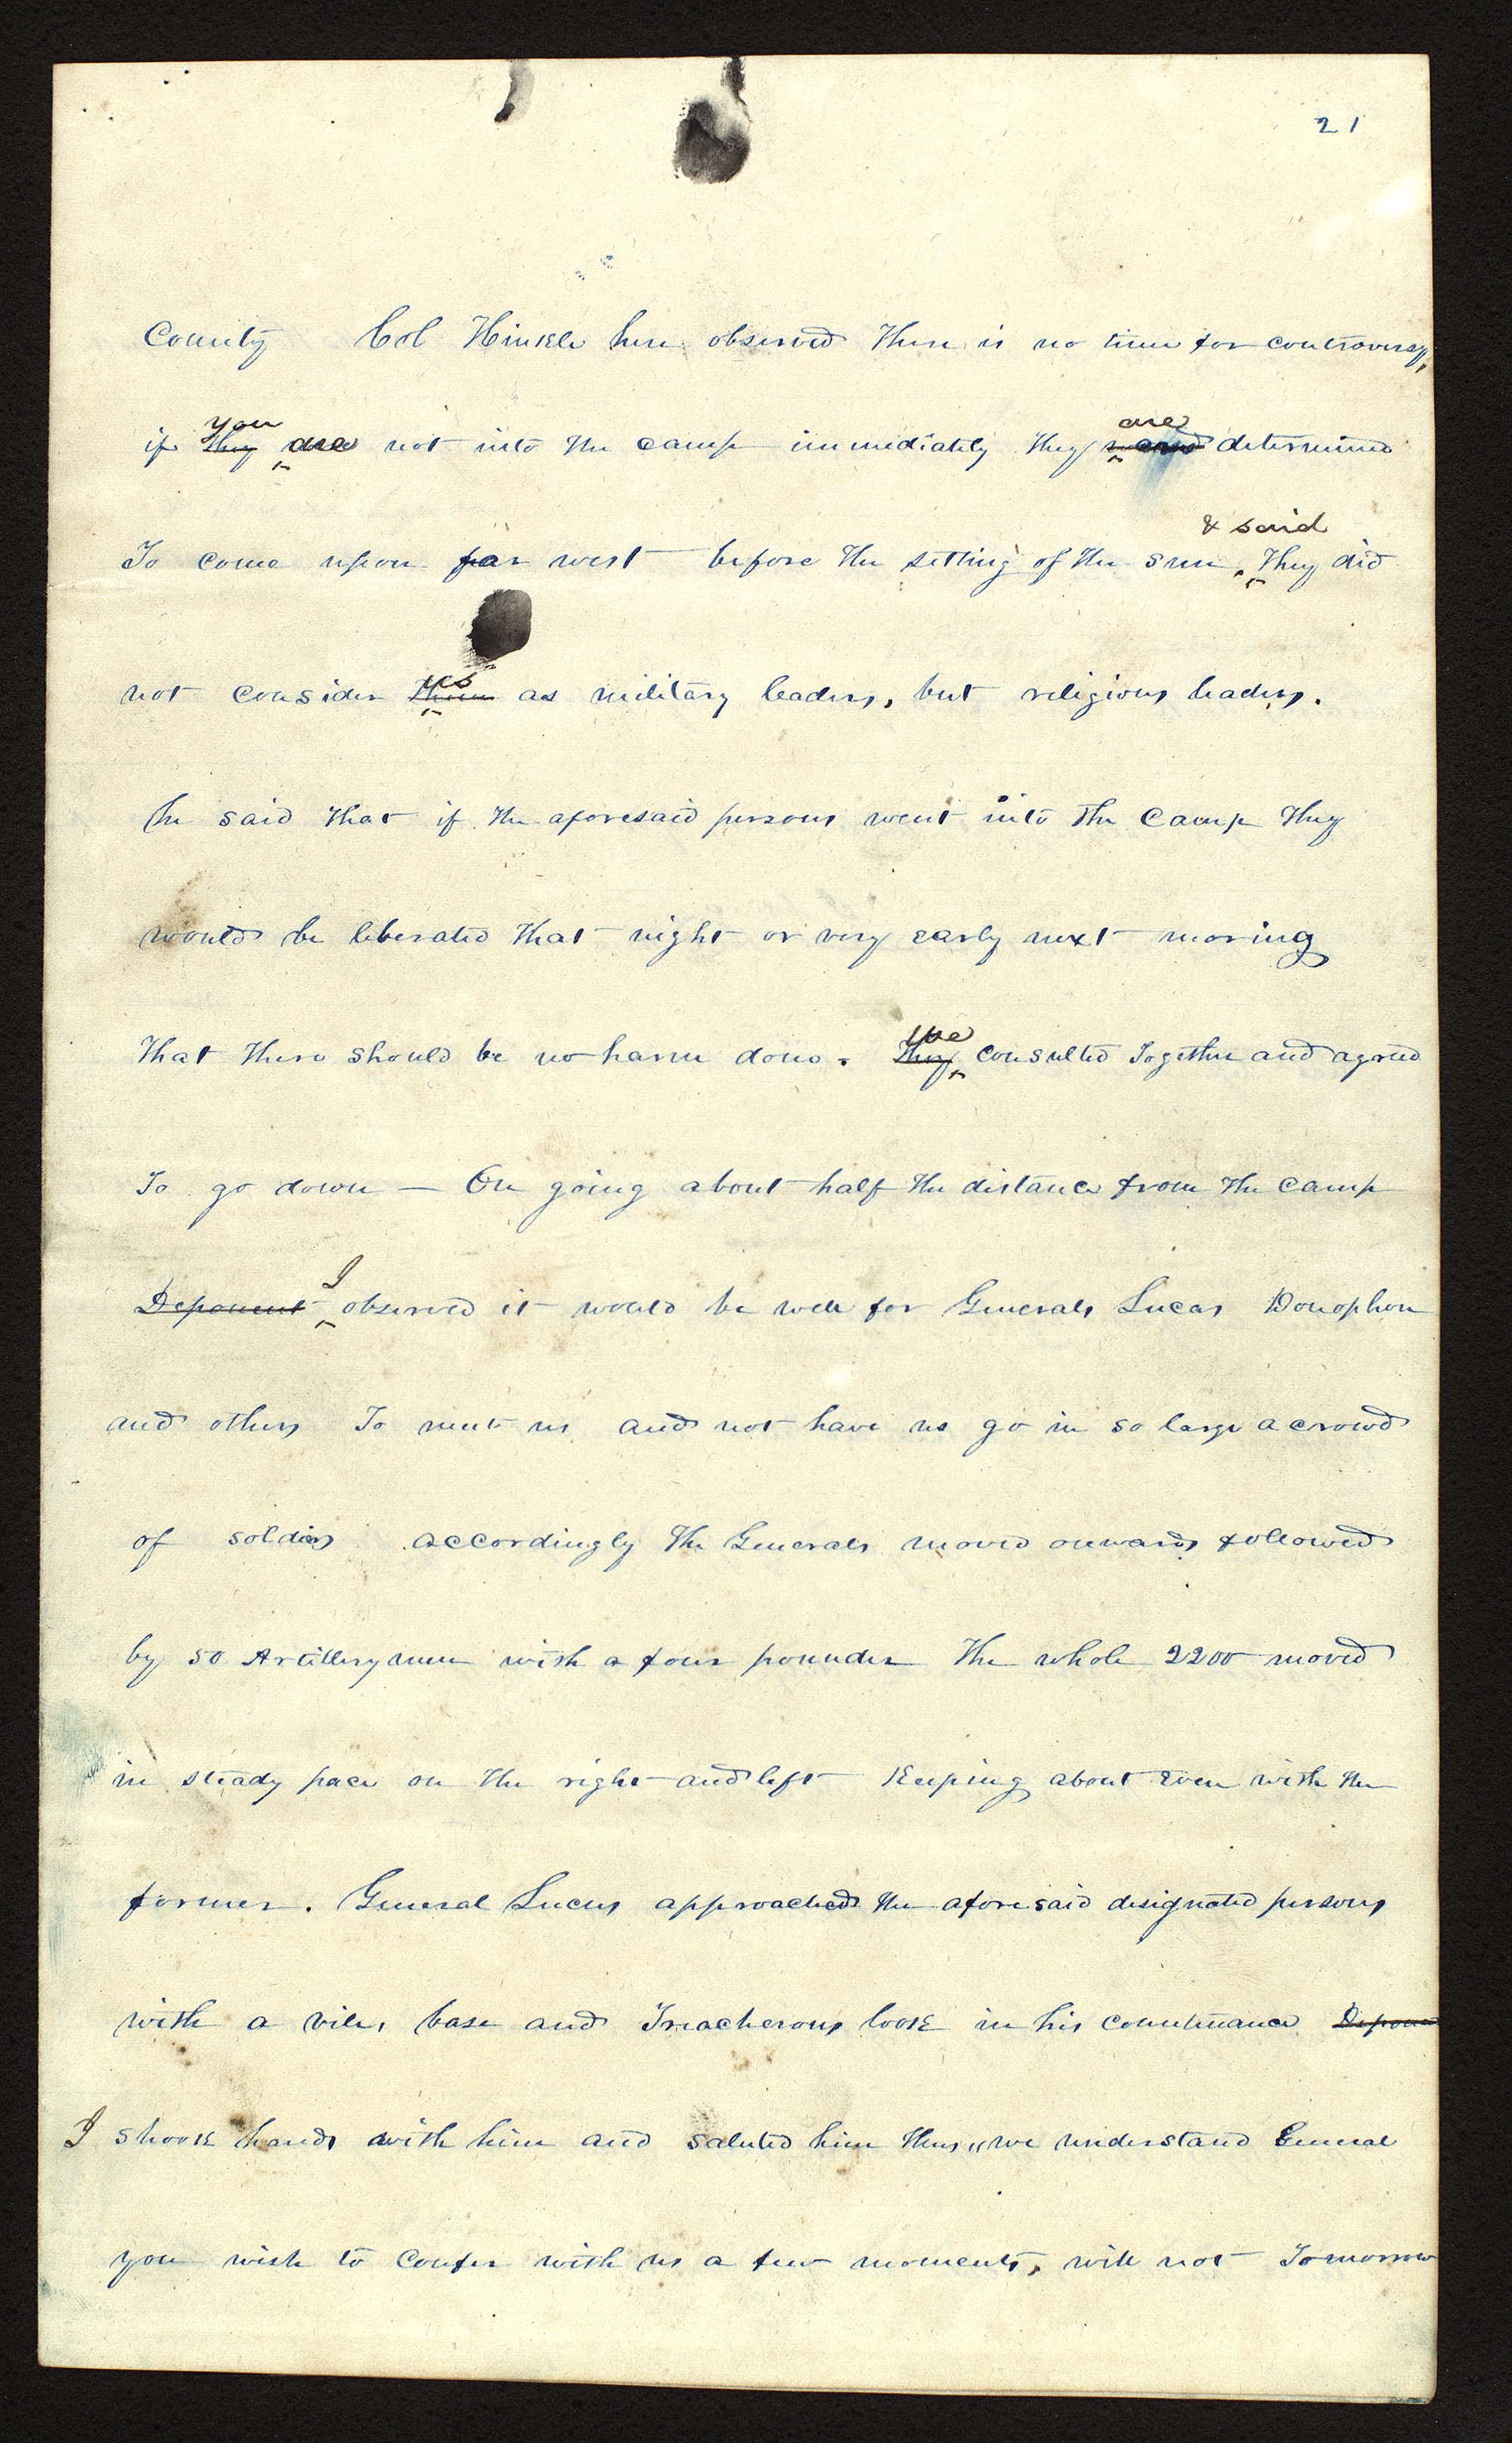 21
County Col Hinkle here observed there is no time for controversy,
you are
if they are not into the camp immediately they were determined
& said
To come upon far west before the setting of the sun, They did
us
not consider them as military leaders, but religious leaders.
he said that if the aforesaid persons went into the camp they
would be liberated that night or very early next moring
That there should be no harm done. They consulted Together and agreed
we
To go down — On going about half the distance from the camp
I
Deponent observed it would be well for Generals Lucas Donophon
and others To meet us and not have us go in so large a crowd
of soldiers accordingly the Generals moved onwards followed
by 50 Artillerymen with a four pounder The whole 2200 moved
in steady pace on the right and left Keeping about Even with the
former. General Lucus approached the aforesaid designated persons
with a vile, base and Treacherous look in his countenance Depone
I shook hands with him and saluted him thus, "we understand General
you wish to confer with us a few moments, will not Tomorrow